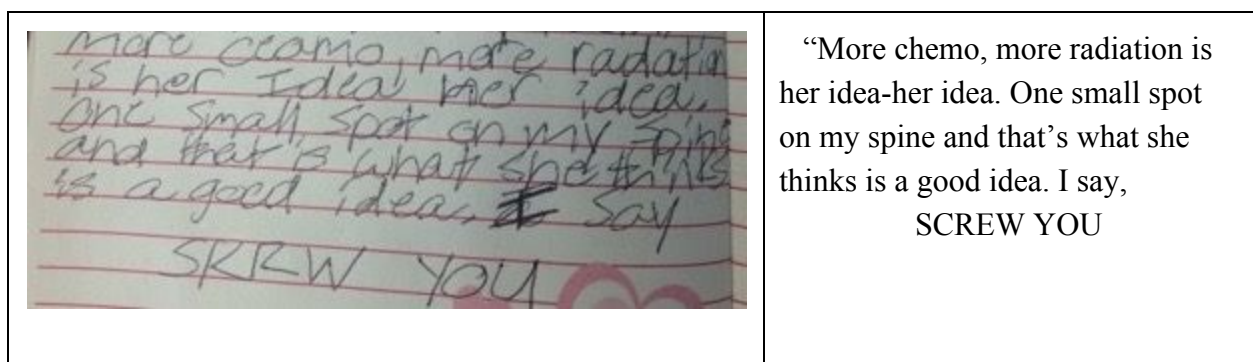 more ceamo, more radation
is her Idea! her idea.
one small spot on my spine
and that is what she thinks
is a good idea. I say
SKRW YOU
“More chemo, more radiation is
her idea-her idea. One small spot
on my spine and that’s what she
thinks is a good idea. I say,
SCREW YOU